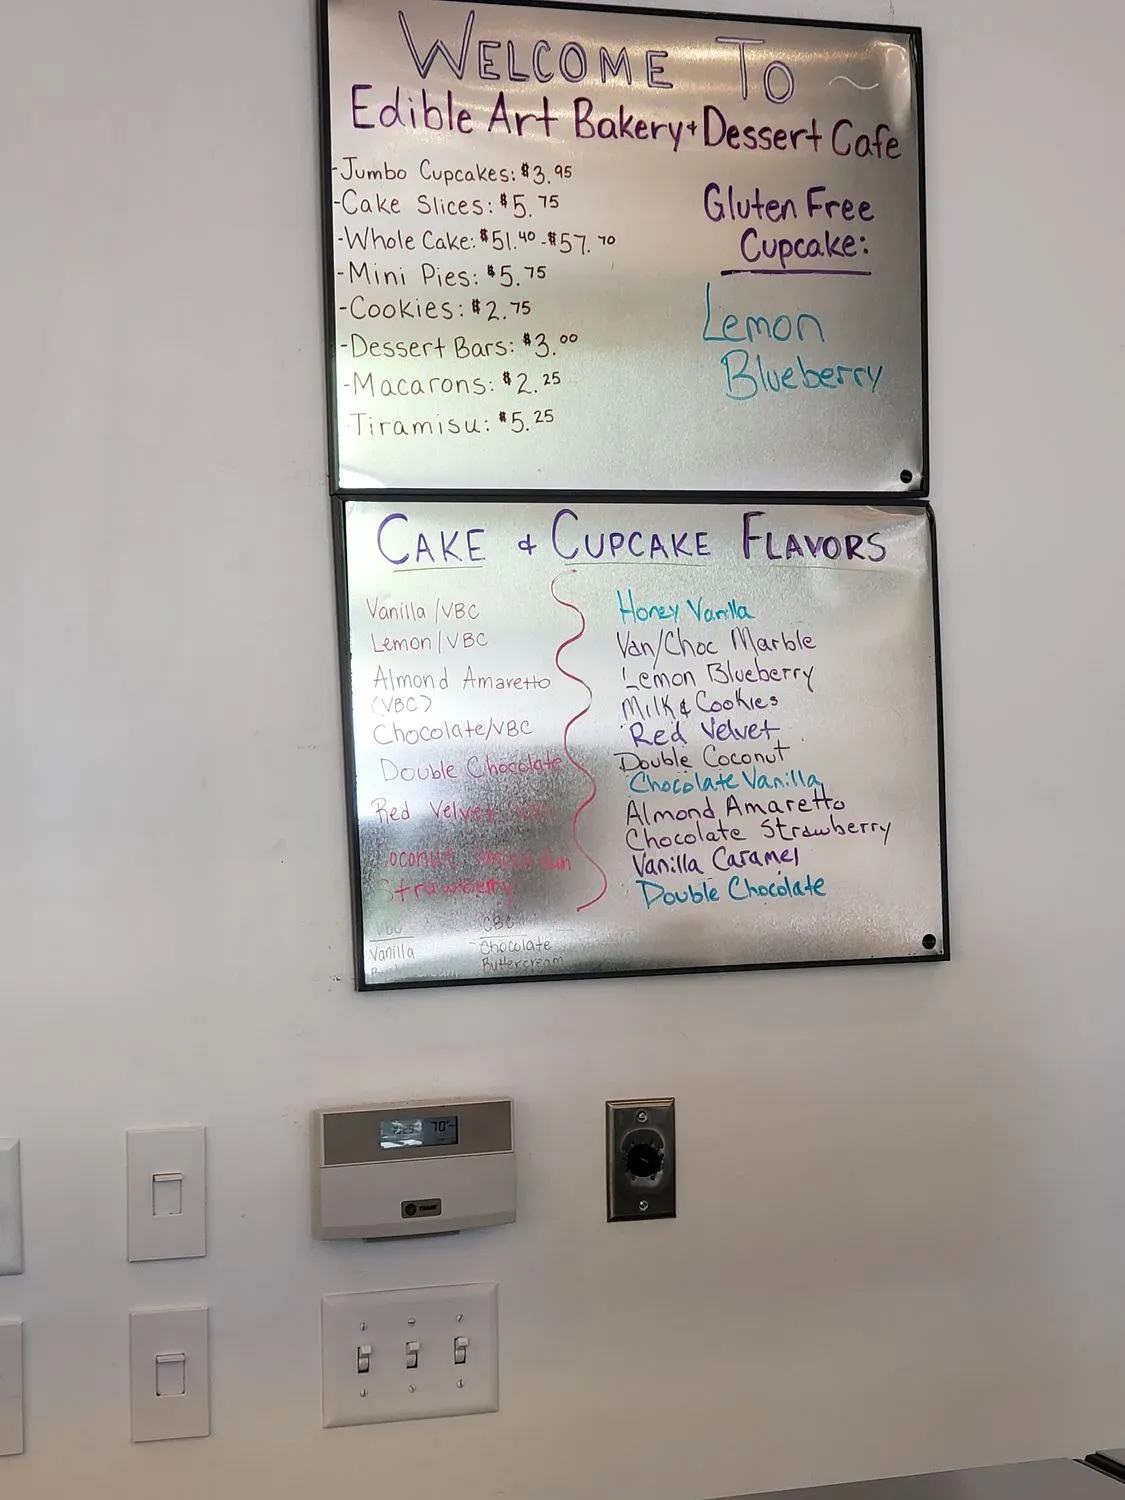 WELCOME TO ~
Edible Art Bakery + Dessert Cafe
-Jumbo Cupcakes: $3.95
-Cake Slices: $5.75
-Whole Cake: $51.40 - $57.70
-Mini Pies: $5.75
-Cookies: $2.75
-Dessert Bars: $3.00
-Macarons: $2.25
-Tiramisu: $5.25
Gluten Free
Cupcake:
Lemon
Blueberry
CAKE & CUPCAKE FLAVORS
Vanilla/VBC
Lemon/VBC
Almond Amaretto
(VBC)
Chocolate/VBC
Double Chocolate
Red Velvet
Coconut
Strawberry
VBC
Vanilla
CBC
Chocolate
Buttercream
Honey Vanilla
Van/Choc Marble
Lemon Blueberry
Milk & Cookies
Red Velvet
Double Coconut
Chocolate Vanilla
Almond Amaretto
Chocolate Strawberry
Vanilla Caramel
Double Chocolate
70°
TRANE